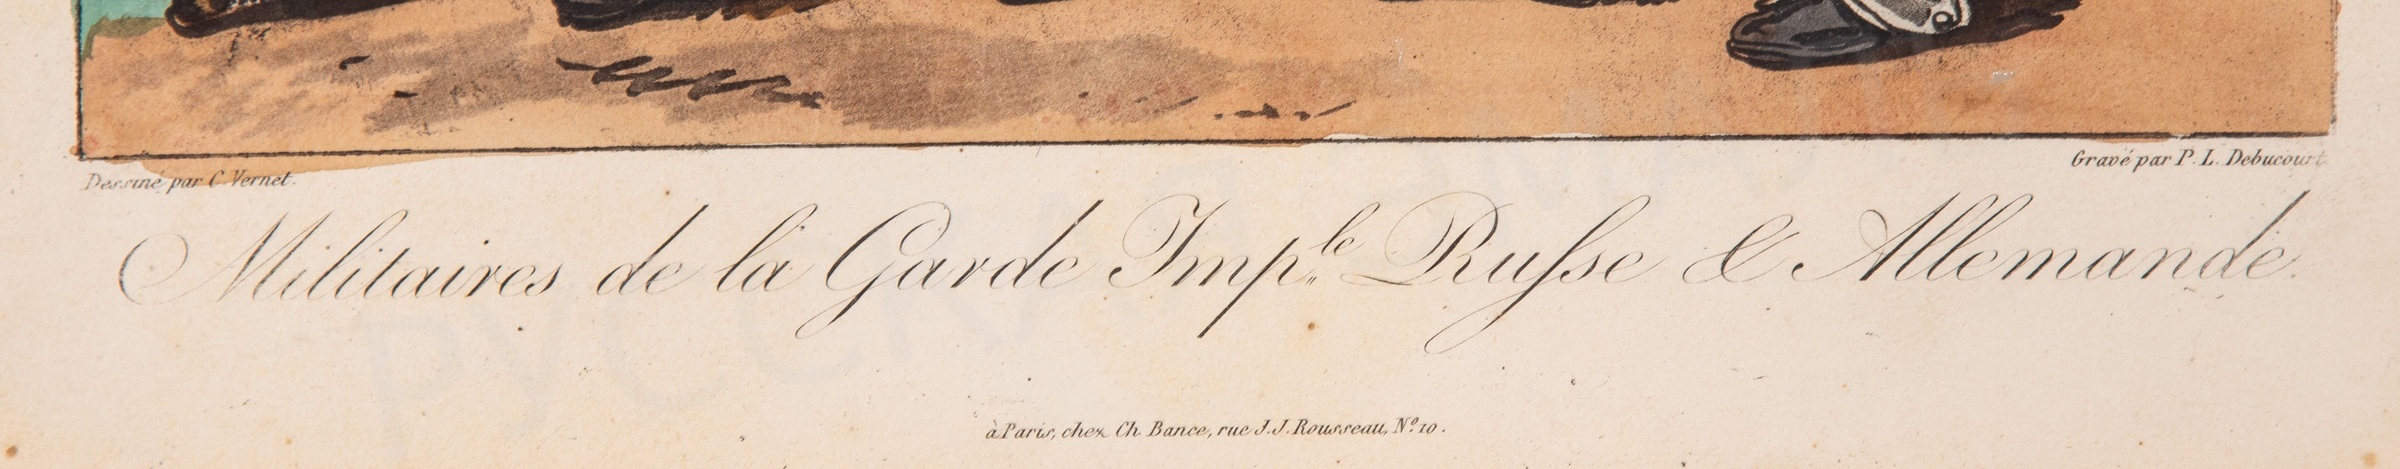 Dessiné par C. Vernet.
Gravé par P. L. Debucourt
Militaires de la Garde Imp.le Rufse & Allemande.
à Paris, chez Ch. Bance, rue J. J. Rousseau, No. 10.